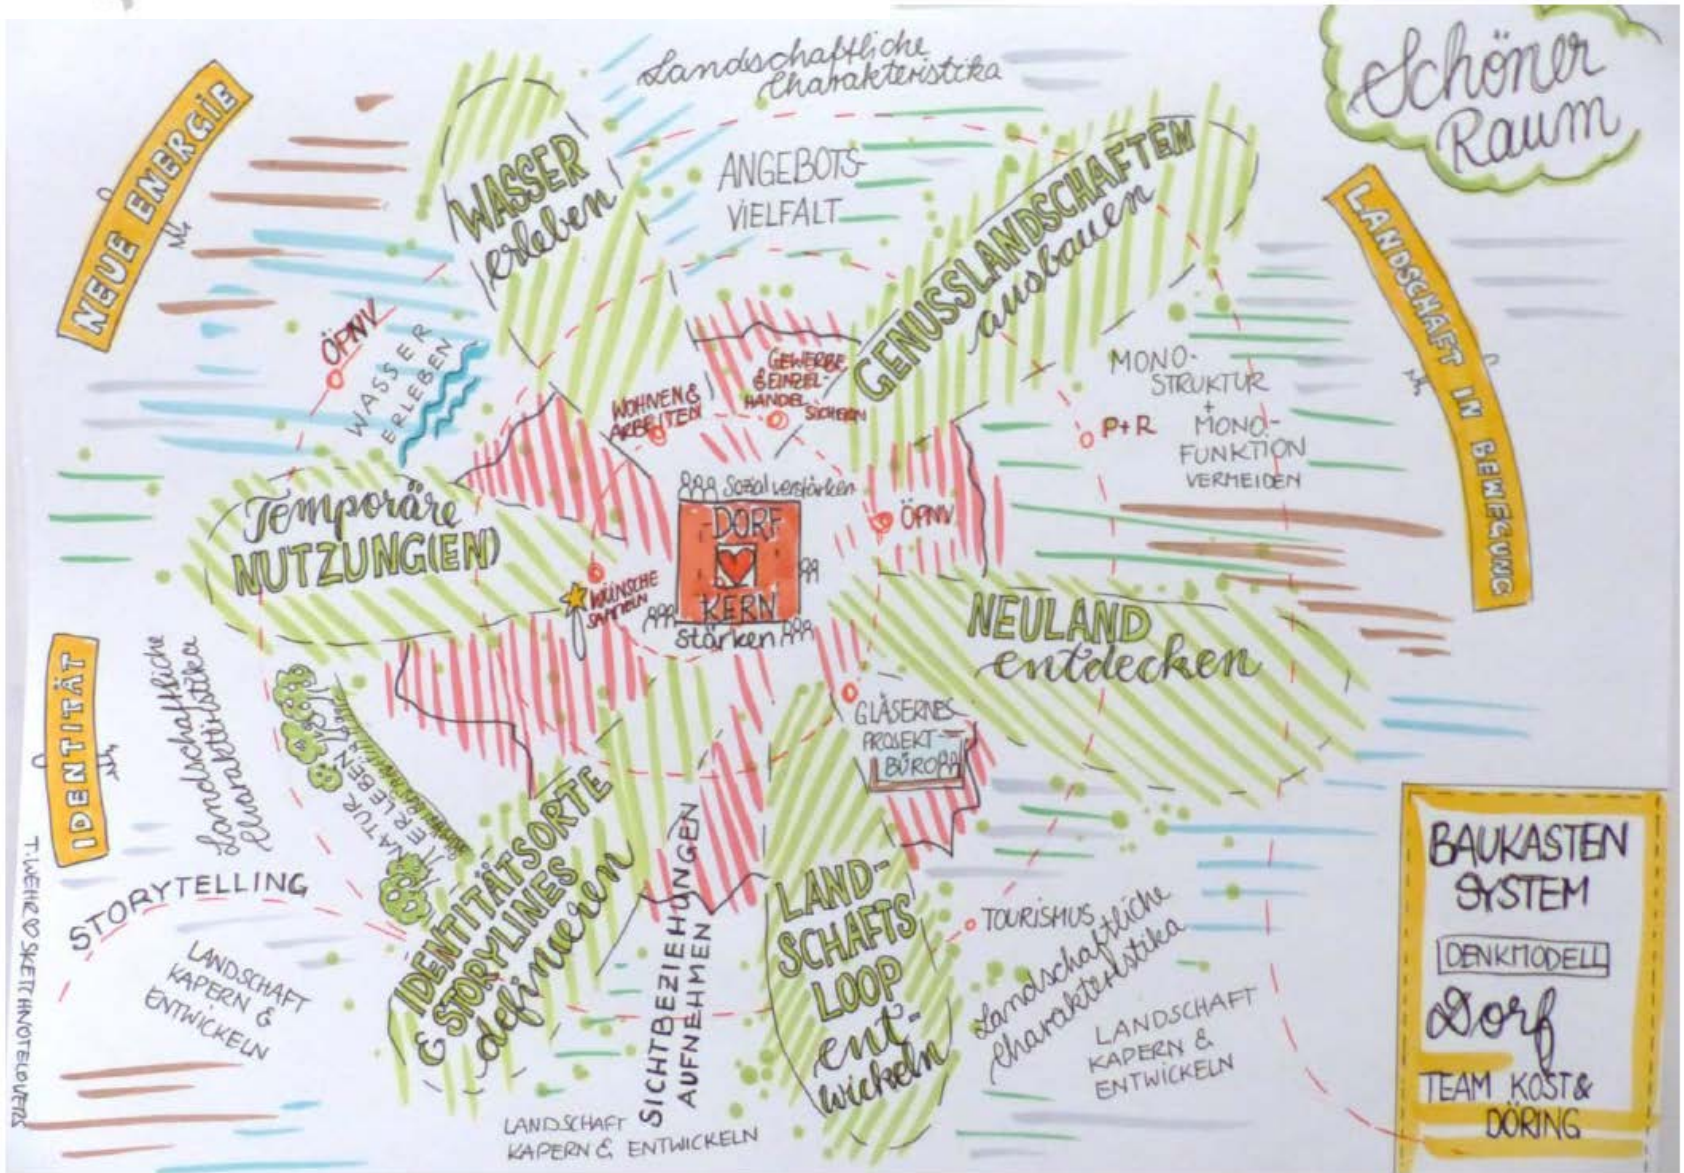 Schöner
Raum
NEUE ENERGIE
Landschaftliche
Charakteristika
ANGEBOTS-
VIELFALT
WASSER
erleben
GENUSSLANDSCHAFTEN
ausbauen
LANDSCHAFT IN BEWEGUNG
ÖPNV
WASSER
ERLEBEN
WOHNEN &
ARBEITEN
GEWERBE
& EINZEL-
HANDEL
SICHERN
MONO-
STRUKTUR
+
MONO-
FUNKTION
VERMEIDEN
P+R
Temporäre
NUTZUNG(EN)
Sozial verstärken
DORF
KERN
stärken
ÖPNV
WÜNSCHE
SAMMELN
NEULAND
entdecken
IDENTITÄT
Landschaftliche
Charaktiristika
NATUR
ERLEBEN
GLÄSERNES
PROJEKT-
BÜRO
IDENTITÄTSORTE
& STORYLINES
definieren
SICHTBEZIEHUNGEN
AUFNEHMEN
LAND-
SCHAFTS
LOOP
ent-
wickeln
STORYTELLING
LANDSCHAFT
KAPERN &
ENTWICKELN
TOURISMUS
Landschaftliche
Charakteristika
LANDSCHAFT
KAPERN &
ENTWICKELN
LANDSCHAFT
KAPERN & ENTWICKELN
BAUKASTEN
SYSTEM
DENKMODELL
Dorf
TEAM KOST &
DÖRING